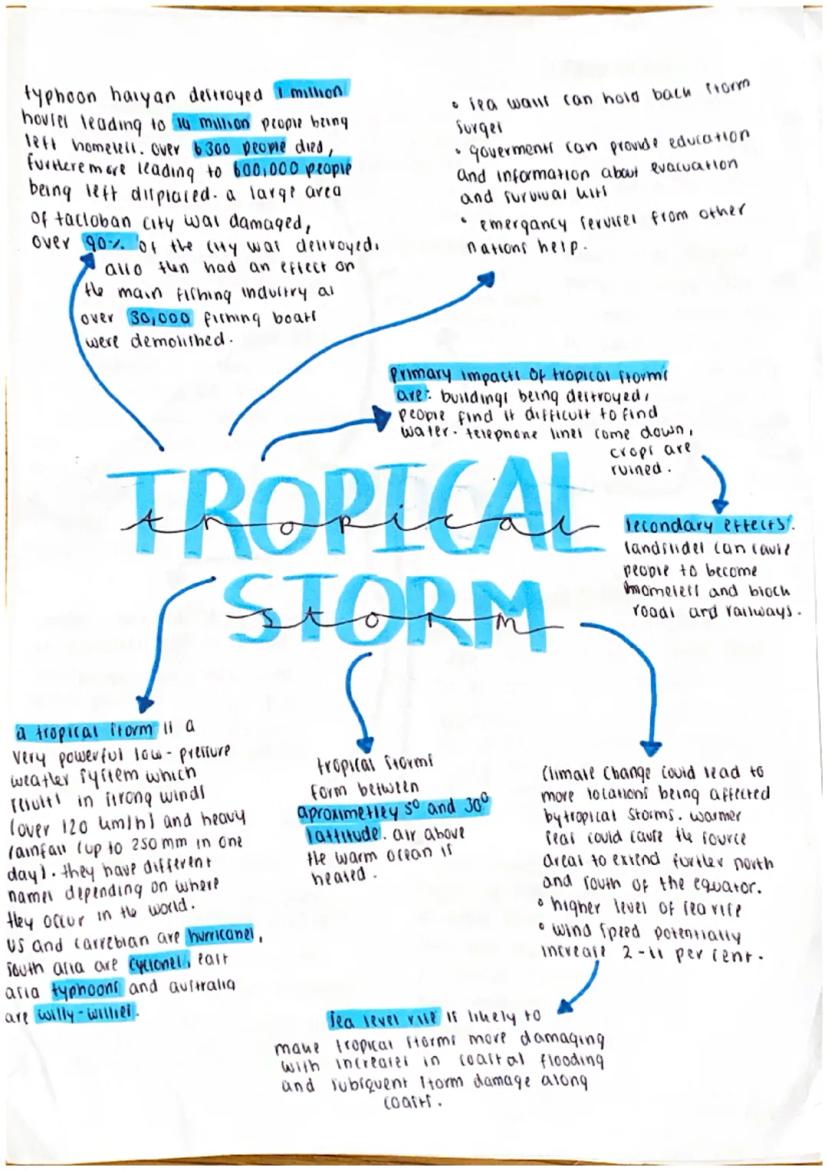 typhoon haiyan destroyed 1 million
houses leading to 14 million people being
left homeless. over 6300 people died,
furtheremore leading to 600,000 people
being left displaced. a large area
of tacloban city was damaged,
over 90% of the city was destroyed.
also then had an effect on
the main fishing industry as
over 30,000 fishing boats
were demolished.
• sea walls can hold back storm
surges
• goverments can provide education
and information about evacuation
and survival kits
• emergancy services from other
nations help.
primary impacts of tropical storms
are: buildings being destroyed,
people find it difficult to find
water. telephone lines come down,
crops are
ruined.
TROPICAL
tropical
STORM
storm
secondary effects:
landslides can cause
people to become
homeless and block
roads and railways.
a tropical storm is a
very powerful low-pressure
weather system which
results in strong winds
(over 120 km/h) and heavy
rainfall (up to 250 mm in one
day). they have different
names depending on where
they occur in the world.
US and carrebian are hurricanes,
south asia are cyclones, east
asia typhoons and australia
are willy-willies.
tropical storms
form between
aproximetley 5° and 30°
lattitude. air above
the warm ocean is
heated.
climate change could lead to
more locations being affected
by tropical storms. warmer
seas could cause the source
areas to extend further north
and south of the equator.
• higher level of sea rise
• wind speed potentially
increase 2-11 per cent.
sea level rise is likely to
make tropical storms more damaging
with increases in coastal flooding
and subsiquent storm damage along
coasts.